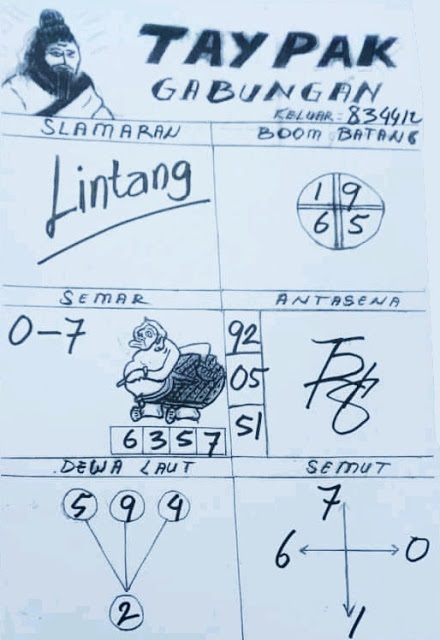 TAYPAK
GABUNGAN
KELUAR: 834412
SLAMARAN
BOOM BATANG
Lintang
1 9
6 5
SEMAR
ANTASENA
0-7
92
05
51
6 3 5 7
DEWA LAUT
SEMUT
5 9 4
2
7
6 0
1